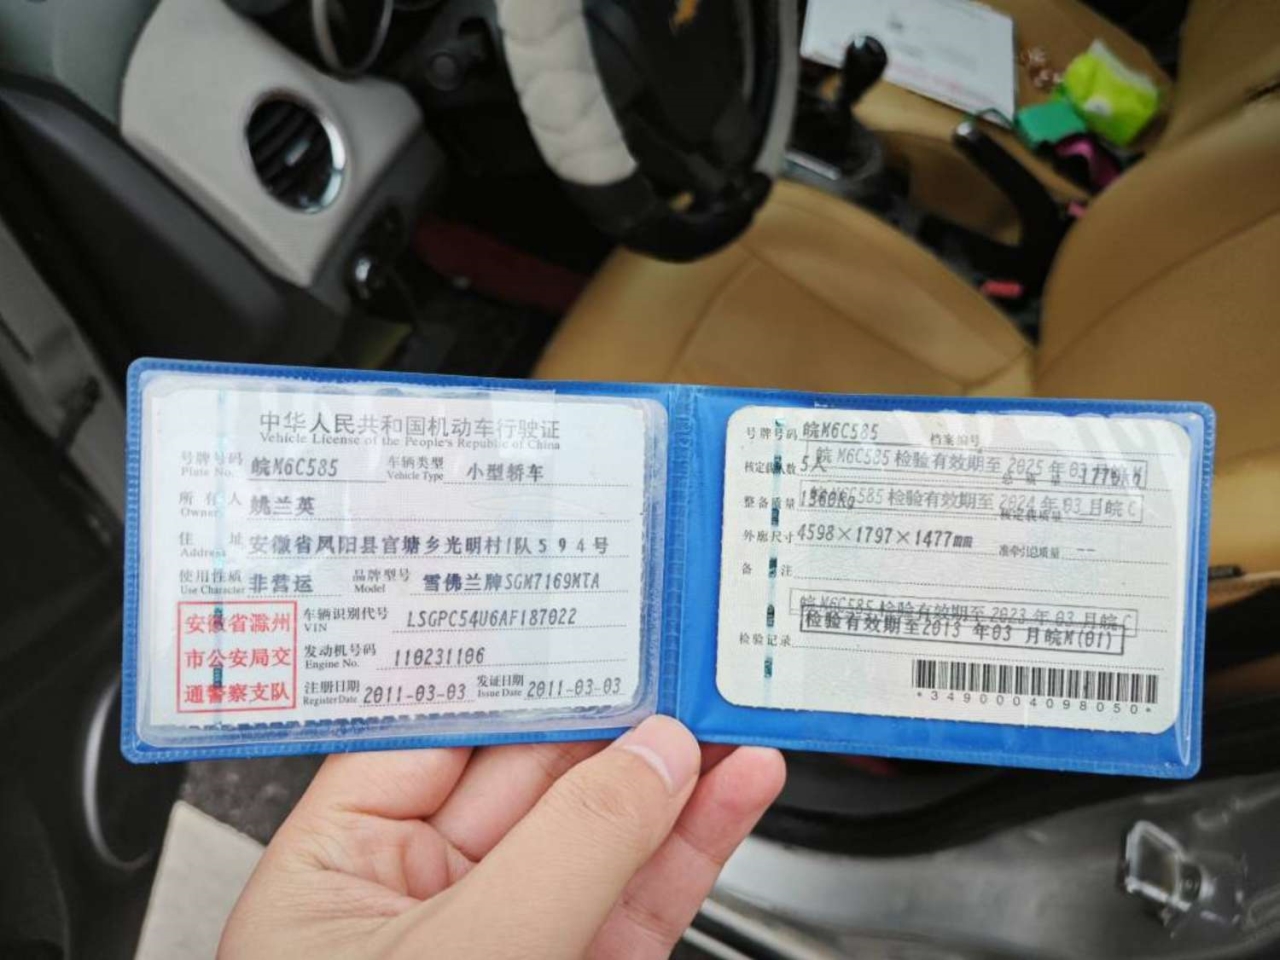 中华人民共和国机动车行驶证
Vehicle License of the People's Republic of China
号牌号码 皖M6C585 车辆类型 小型轿车
Plate No. Vehicle Type
所有人 姚兰英
Owner
住址 安徽省凤阳县官塘乡光明村1队594号
Address
使用性质 非营运 品牌型号 雪佛兰牌SGM7169MTA
Use Character Model
安徽省滁州
市公安局交
通警察支队
车辆识别代号 LSGPC54U6AF187022
VIN
发动机号码 110231106
Engine No.
注册日期 2011-03-03 发证日期 2011-03-03
Register Date Issue Date
号牌号码 皖M6C585 档案编号
核定载人数 5人
皖M6C585 检验有效期至 2025 年 03
整备质量 1360Kg
检验有效期至 2024 年 03 月皖C
核定载质量
外廓尺寸 4598×1797×1477 准牵引总质量 --
备注
皖M6C585 检验有效期至 2023 年 03 月皖C
检验记录 检验有效期至2013 年03 月皖M(01)
*3490004098050*